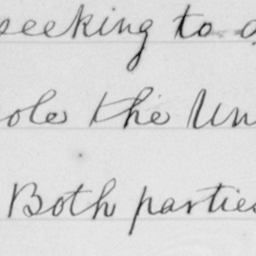 seeking to
the Un
Both parties